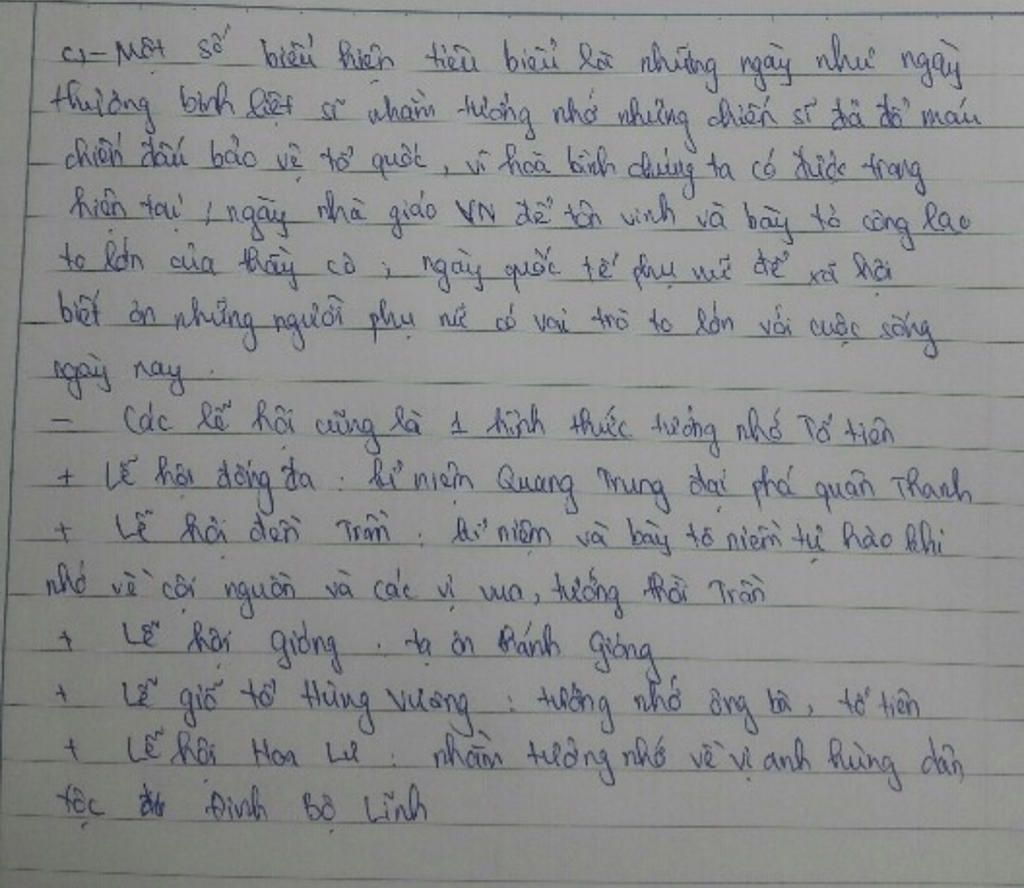 c, - Một số biểu hiện tiêu biểu là những ngày như ngày
thương binh liệt sĩ nhằm tưởng nhớ những chiến sĩ đã đổ máu
chiến đấu bảo vệ tổ quốc, vì hoà bình chúng ta có được trong
hiện tại ; ngày nhà giáo VN để tôn vinh và bày tỏ công lao
to lớn của thầy cô ; ngày quốc tế phụ nữ để xã hội
biết ơn những người phụ nữ có vai trò to lớn với cuộc sống
ngày nay.
- Các lễ hội cũng là 1 hình thức tưởng nhớ Tổ tiên
+ Lễ hội đống đa : kỉ niệm Quang Trung đại phá quân Thanh
+ Lễ hội đền Trần : kỉ niệm và bày tỏ niềm tự hào khi
nhớ về cội nguồn và các vị vua, tướng thời Trần
+ Lễ hội gióng : tạ ơn thánh Gióng
+ Lễ giỗ tổ Hùng Vương : tưởng nhớ ông bà, tổ tiên
+ Lễ hội Hoa Lư : nhằm tưởng nhớ về vị anh hùng dân
tộc Đinh Bộ Lĩnh